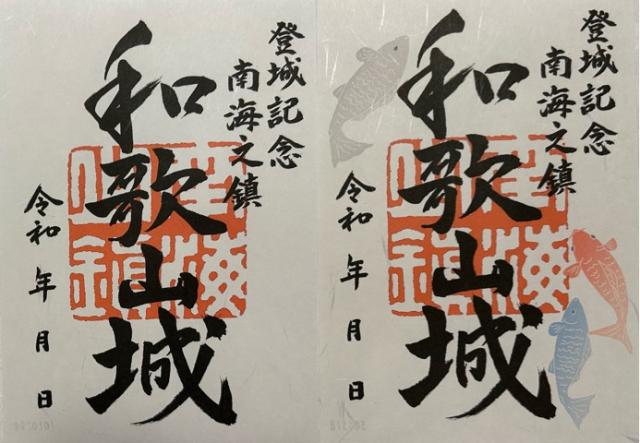 登城記念
南海之鎮
和歌山城
令和 年 月 日
登城記念
南海之鎮
和歌山城
令和 年 月 日